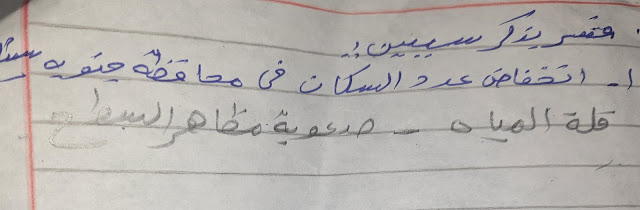 فسر بذكر سببين :
1- انخفاض عدد السكان فى محافظة جنوب سينا
قلة المياه - صعوبة مظاهر السطح